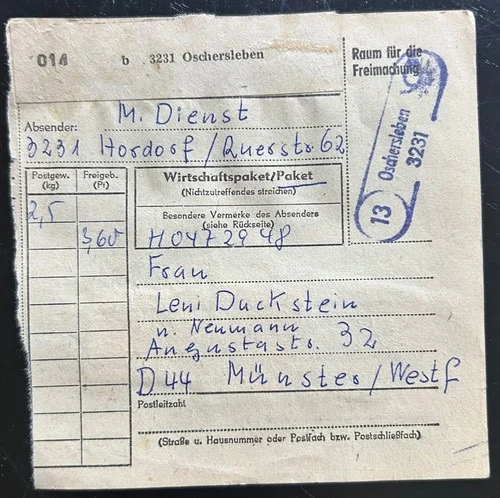 014 b 3231 Oschersleben
Raum für die
Freimachung
Oschersleben
3231
13
Absender: M. Dienst
3231 Hordorf / Querstr 62
Postgew. (kg)
Freigeb. (Pf)
2,5
3,60
Wirtschaftspaket/Paket
(Nichtzutreffendes streichen)
Besondere Vermerke des Absenders
(siehe Rückseite)
H0472948
Frau
Leni Duckstein
n. Neumann
Augustastr. 32
D44 Münster/Westf
Postleitzahl
(Straße u. Hausnummer oder Postfach bzw. Postschließfach)